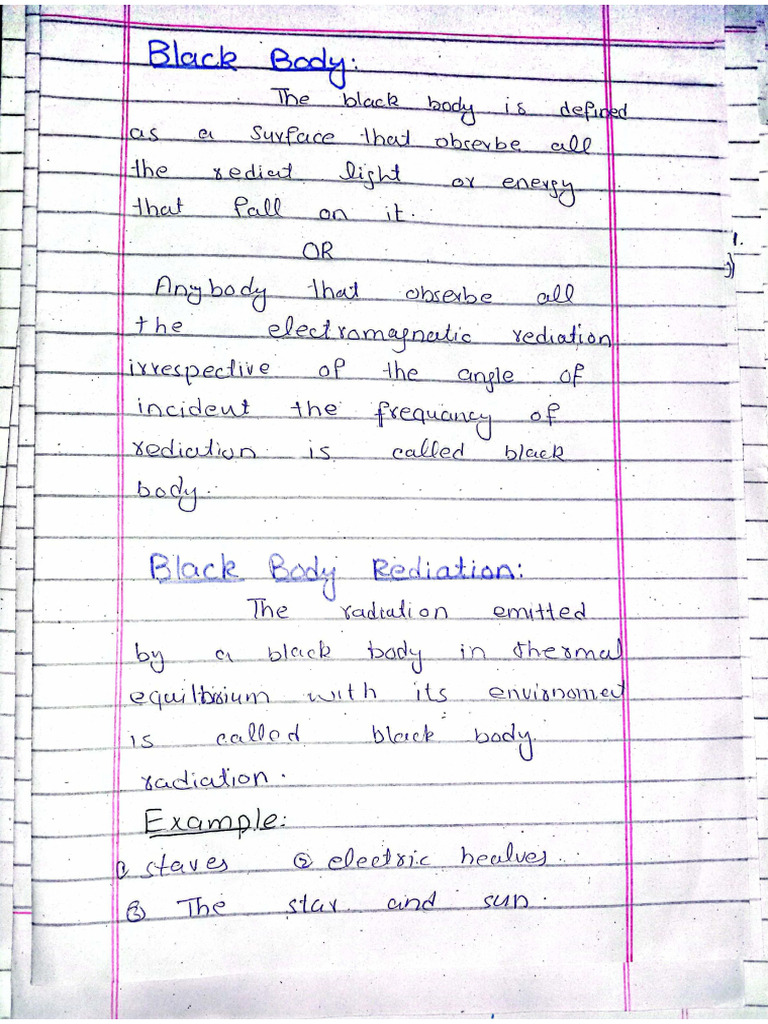 Black Body:
The black body is defined
as a surface that obserbe all
the rediat light or energy
that fall on it.
OR
Anybody that obserbe all
the electromagnatic rediation
irrespective of the angle of
incident the frequancy of
rediation is called black
body.
Black Body Rediation:
The radiation emitted
by a black body in thermal
equilibrium with its envirnomet
is called black body
radiation.
Example:
① staves ② electric
③ The star and sun.
1.